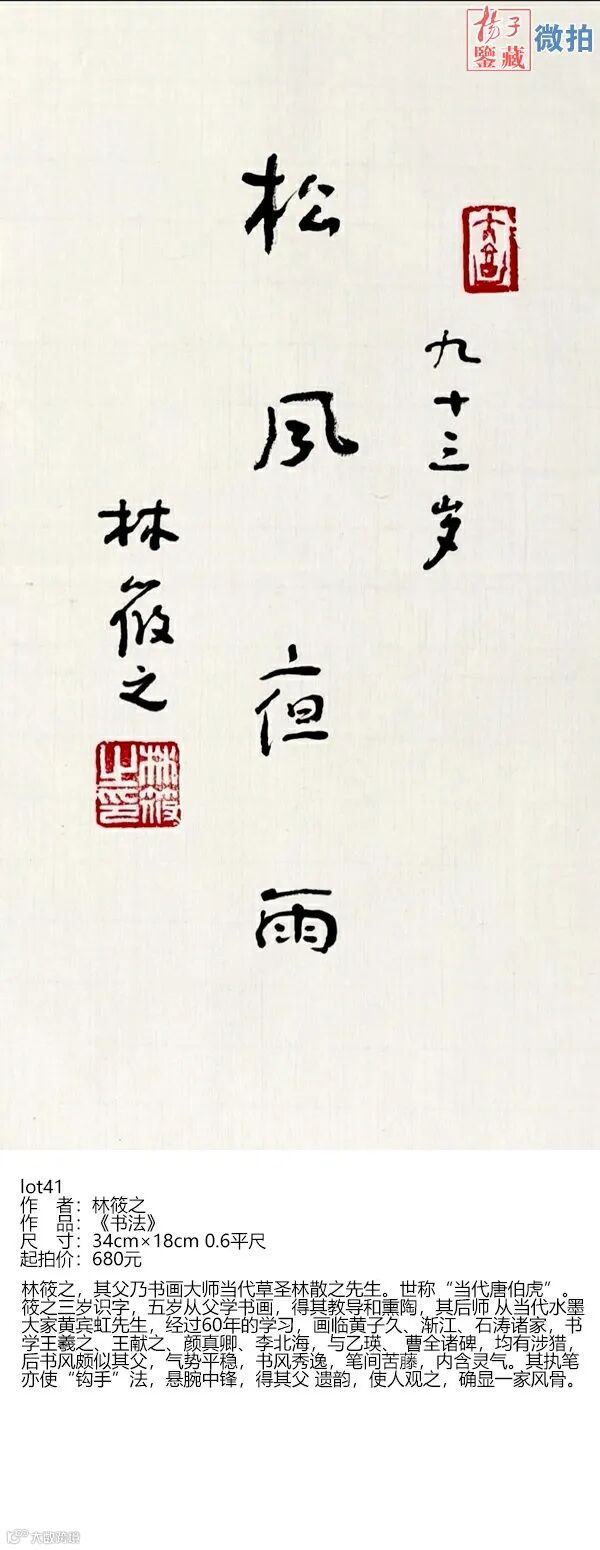 揚子
鑒藏
微拍
九十三岁
松風夜雨
林筱之
林筱之印
lot41
作 者：林筱之
作 品：《书法》
尺 寸：34cm×18cm 0.6平尺
起拍价：680元
林筱之，其父乃书画大师当代草圣林散之先生。世称“当代唐伯虎”。
筱之三岁识字，五岁从父学书画，得其教导和熏陶，其后师 从当代水墨
大家黄宾虹先生，经过60年的学习，画临黄子久、渐江、石涛诸家，书
学王羲之、王献之、颜真卿、李北海，与乙瑛、 曹全诸碑，均有涉猎，
后书风颇似其父，气势平稳，书风秀逸，笔间苦藤，内含灵气。其执笔
亦使“钩手”法，悬腕中锋，得其父 遗韵，使人观之，确显一家风骨。
大歐跨境